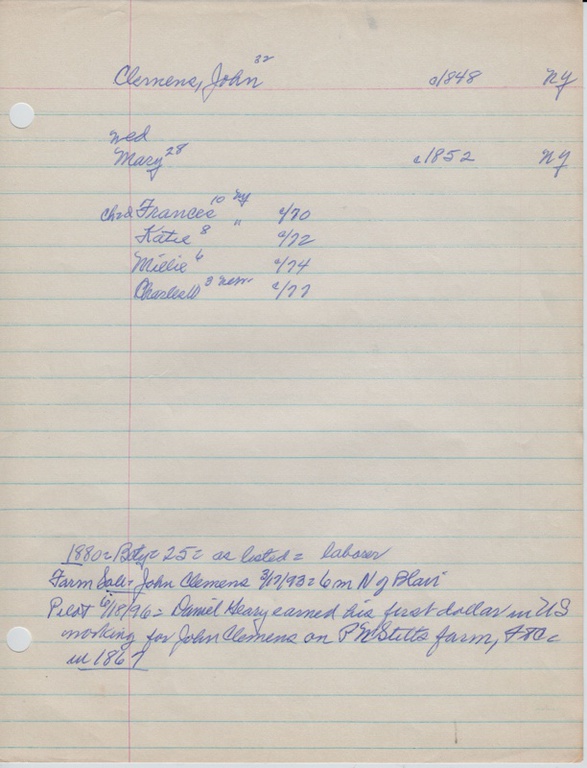 Clemens, John 32 c1848 NY
wed
Mary 28 c1852 NY
chrd Frances 10 NY c/70
Katie 8 " c/72
Millie 6 c/74
Charles W 3 c/77
1880 = = 25 = as listed = laborer
Farm Sale = John Clemens 3/17/93 = 6 m N of Blair
Pilot 6/18/96 = Daniel Henry earned his first dollar in US
working for John Clemens on farm,
in 1867